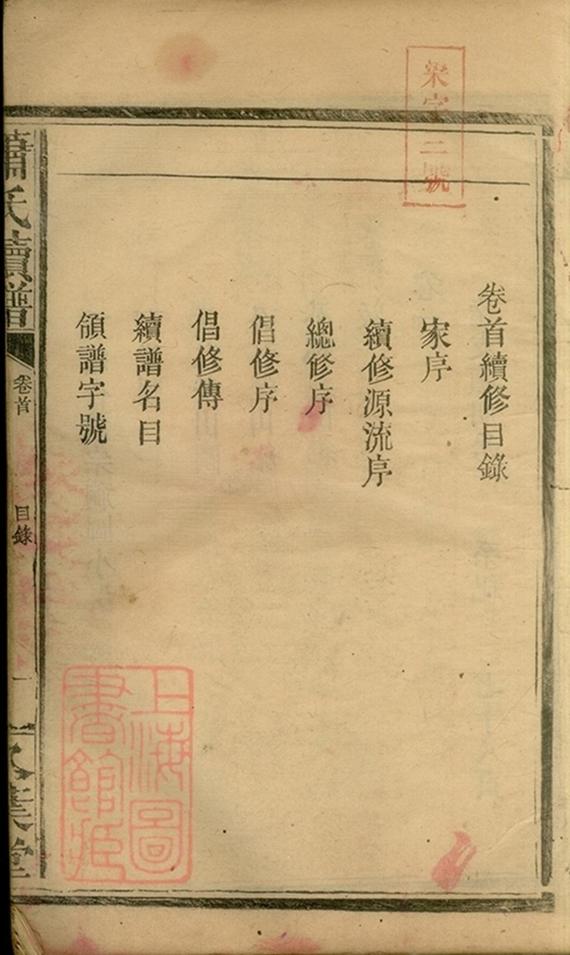 樂字二號
卷首續修目錄
家序
續修源流序
總修序
倡修序
倡修傳
續譜名目
領譜字號
蕭氏續譜
卷首
目錄
一
上海圖
書館藏